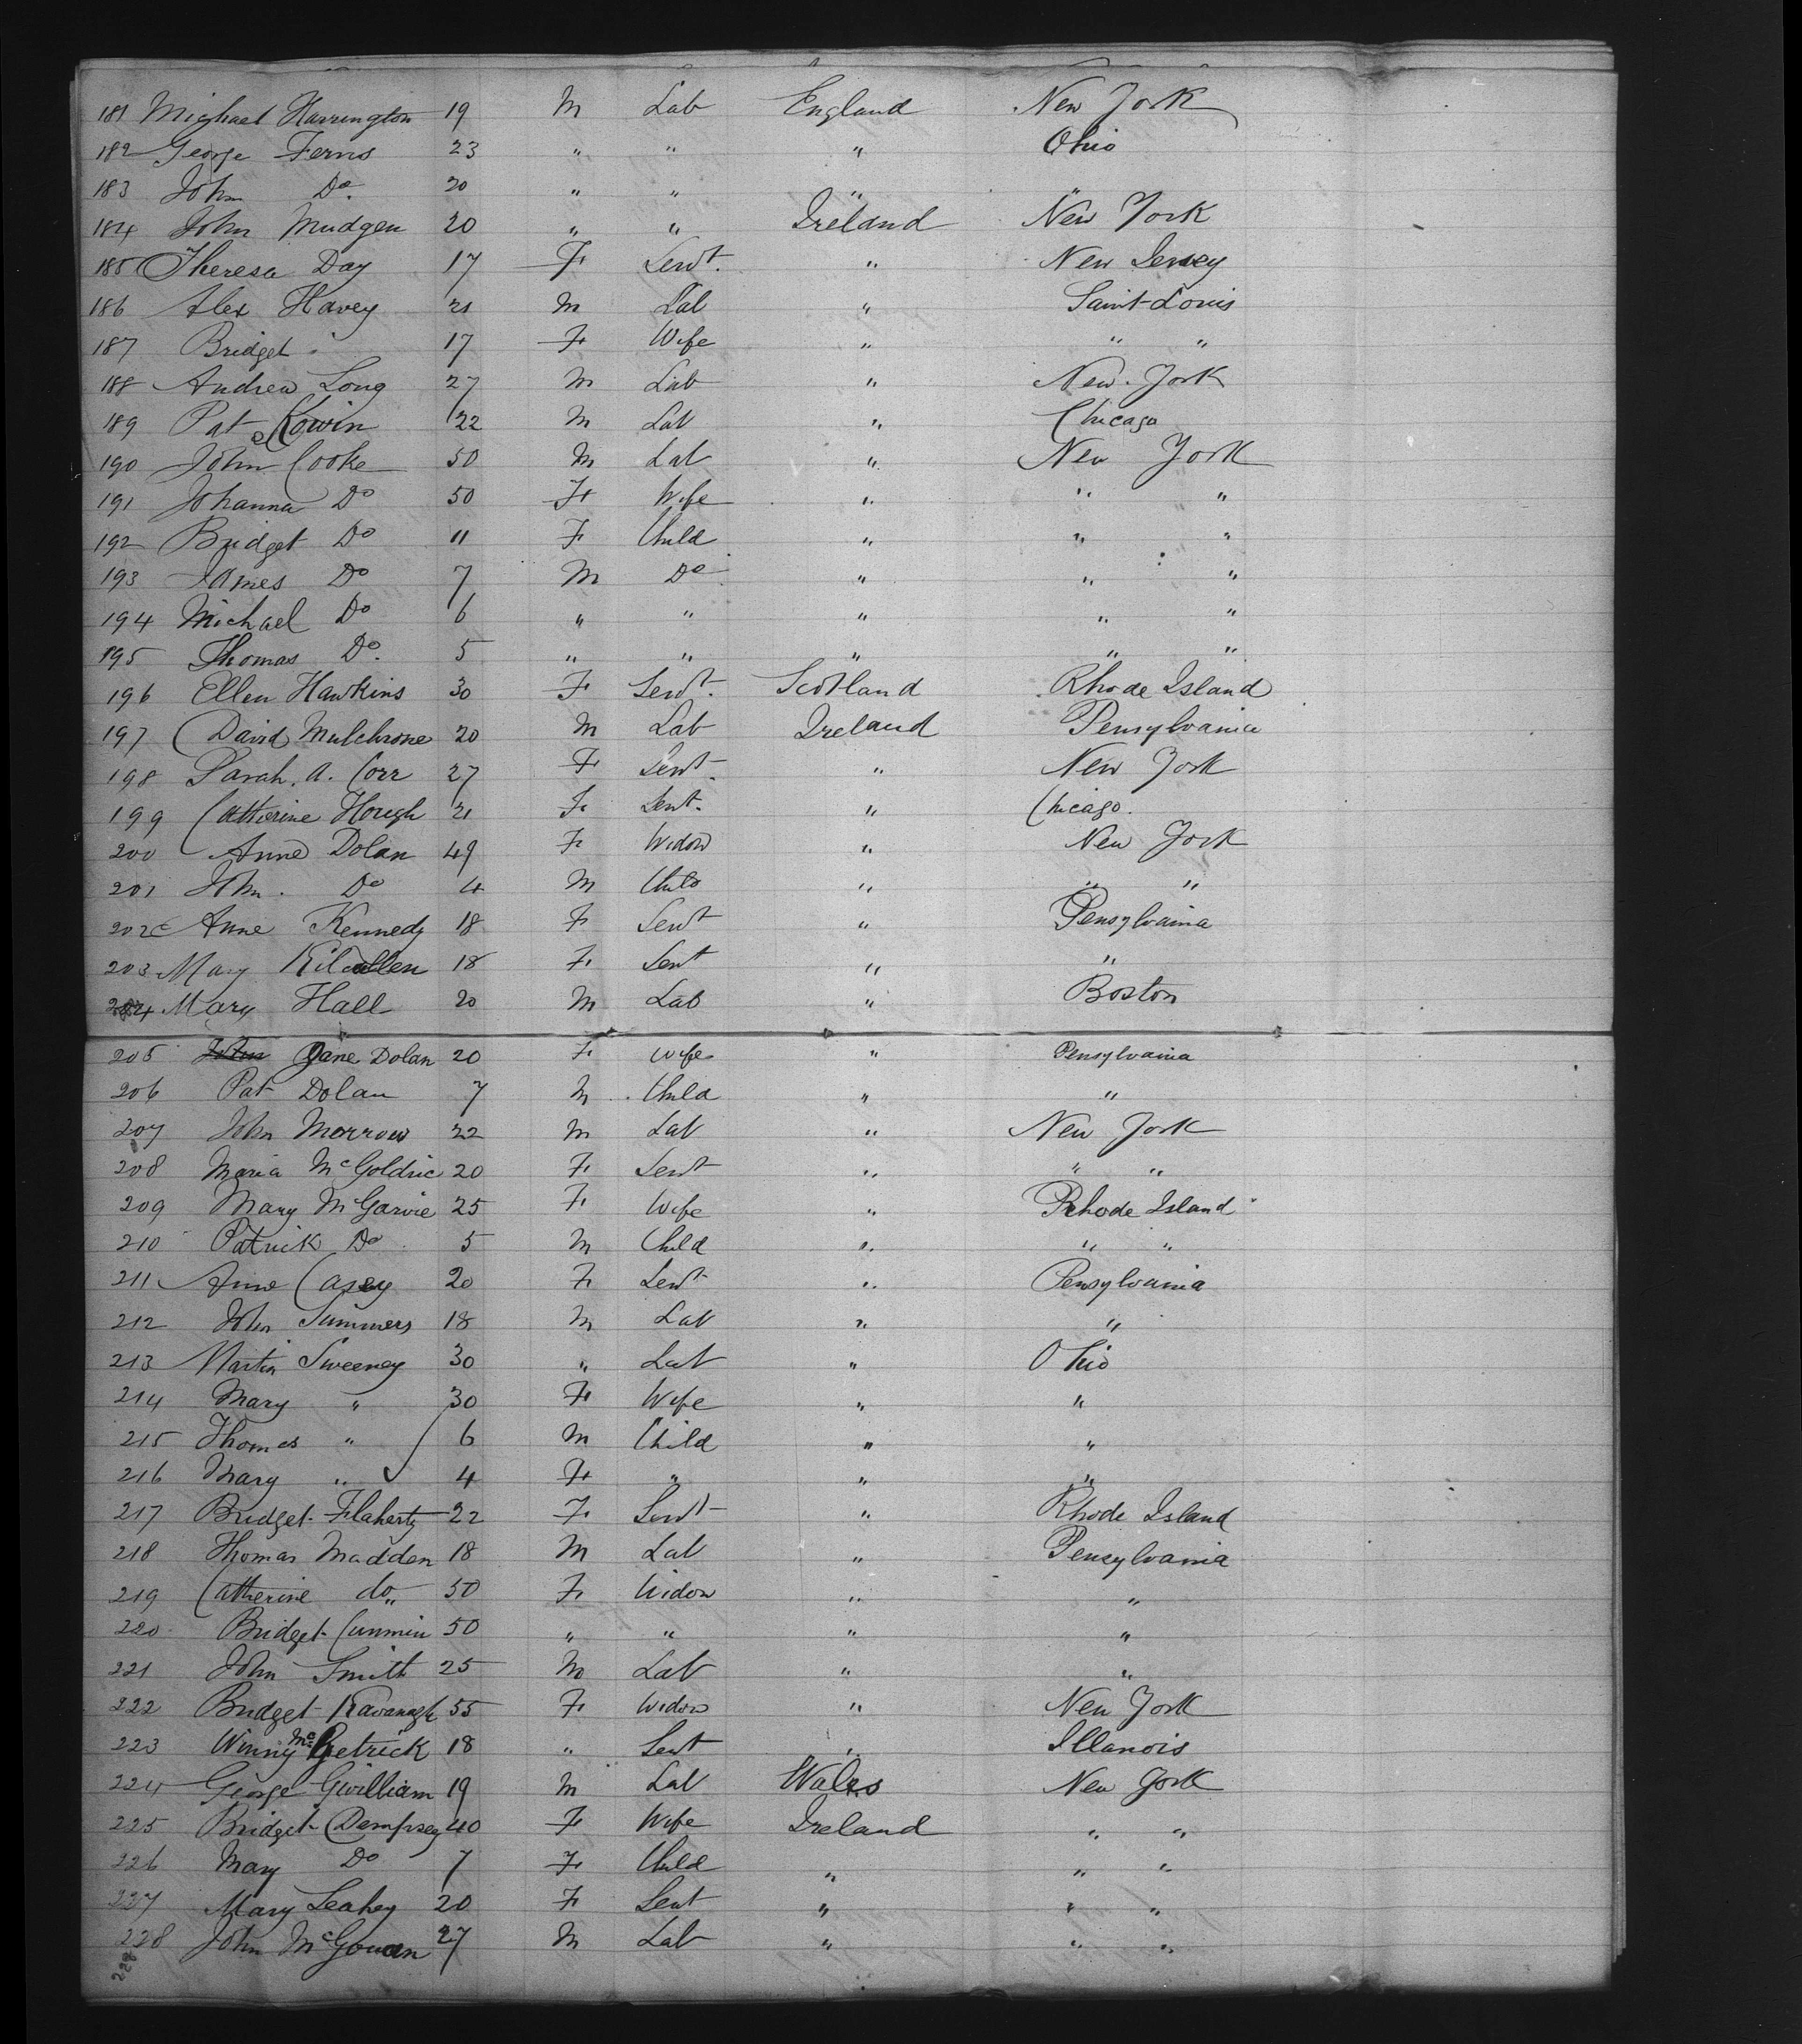 181 Mighael Harrington 19 M Lab England New York
182 George Ferns 23 " " " Ohio
183 John Do 20 " " " "
184 John Mudgen 20 " " Ireland New York
185 Theresa Day 17 F Servt. " New Jersey
186 Alex Havey 21 M Lab " Saint-Louis
187 Bridget " 17 F Wife " " "
188 Andrew Long 27 M Lab " New York
189 Pat Kowin 22 M Lab " Chicago
190 John Cooke 50 M Lab " New York
191 Johanna Do 50 F Wife " " "
192 Bridget Do 11 F Child " " "
193 James Do 7 M Do " " "
194 Michael Do 6 " " " " "
195 Thomas Do. 5 " " " " "
196 Ellen Hawkins 30 F Servt. Scotland Rhode Island
197 David Mulchrone 20 M Lab Ireland Pensylvania
198 Sarah. A. Corr 27 F Servt. " New York
199 Catherine Hough 21 F Servt. " Chicago.
200 Anne Dolan 49 F Widow " New York
201 John. Do 4 M Child " " "
202 Anne Kennedy 18 F Servt " Pensylvania
203 Mary Kilcullen 18 F Servt " "
204 Mary Hall 20 M Lab " Boston
205 John Jane Dolan 20 F Wife " Pensylvania
206 Pat Dolan 7 M Child " "
207 John Morrow 22 M Lab " New York
208 Maria McGoldric 20 F Servt " " "
209 Mary McGarvie 25 F Wife " Rhode Island
210 Patrick Do 5 M Child " " "
211 Anne Casey 20 F Servt " Pensylvania
212 John Summers 18 M Lab " "
213 Martin Sweeney 30 " Lab " Ohio
214 Mary " 30 F Wife " "
215 Thomas " 6 M Child " "
216 Mary " 4 F " " "
217 Bridget Flaherty 22 F Servt " Rhode Island
218 Thomas Madden 18 M Lab " Pensylvania
219 Catherine do " 50 F Widow " "
220 Bridget Cunmin 50 " " " "
221 John Smith 25 M Lab " "
222 Bridget Kavanagh 55 F Widow " New York
223 Winny McGetrick 18 " Servt " Illanois
224 George Gwilliam 19 M Lab Wales New York
225 Bridget Dempsey 40 F Wife Ireland " "
226 Mary Do 7 F Child " " "
227 Mary Leahey 20 F Servt " " "
228 John McGowan 27 M Lab " " "
228